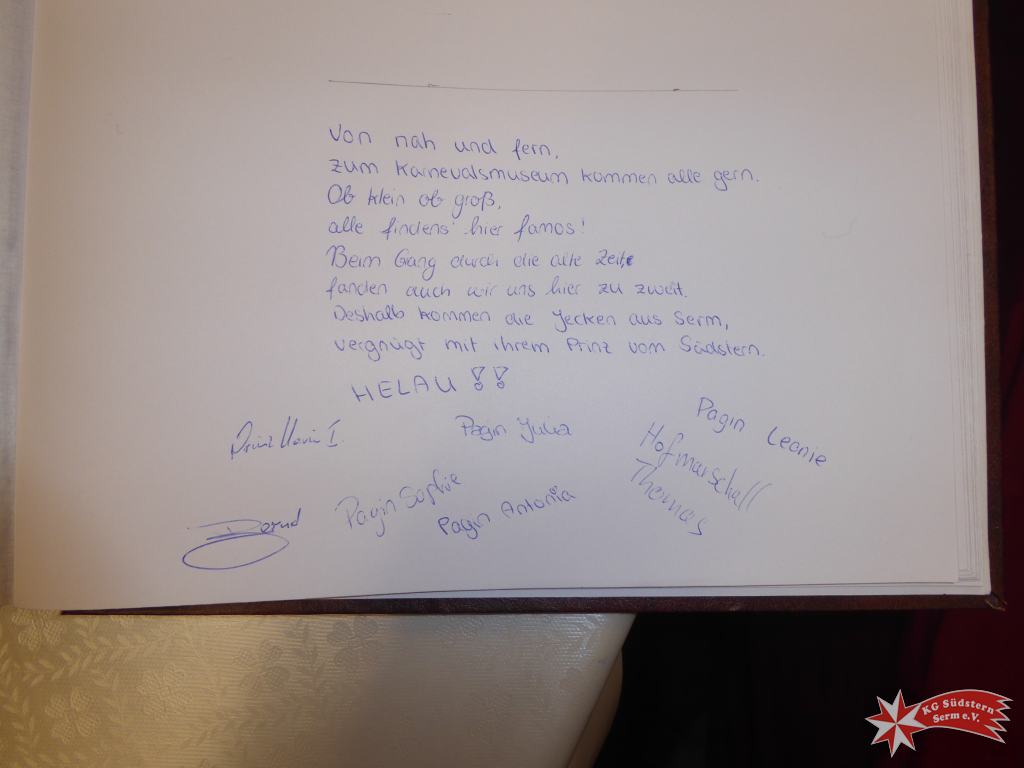 Von nah und fern,
zum Karnevalsmuseum kommen alle gern.
Ob klein ob groß,
alle findens' hier famos!
Beim Gang durch die alte Zeit,
fanden auch wir uns hier zu zweit.
Deshalb kommen die Jecken aus Serm,
vergnügt mit ihrem Prinz vom Südstern.
HELAU !!
Prinz I.
Pagin Julia
Pagin Leonie
Hofmarschall
Thomas
Pagin Sophie
Pagin Antonia
Bernd
KG Südstern
Serm e.V.